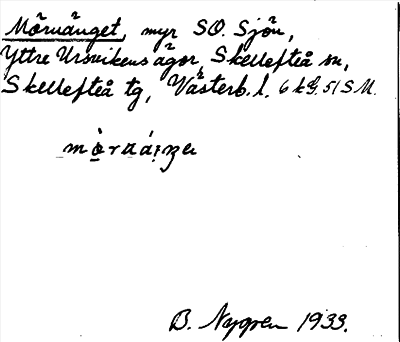 Mörnänget, myr SO. Sjön,
Yttre Ursvikens ägor, Skellefteå sn,
Skellefteå tg, Västerb. l. 6 kg. 51 S.M.
B. Nygren 1933.